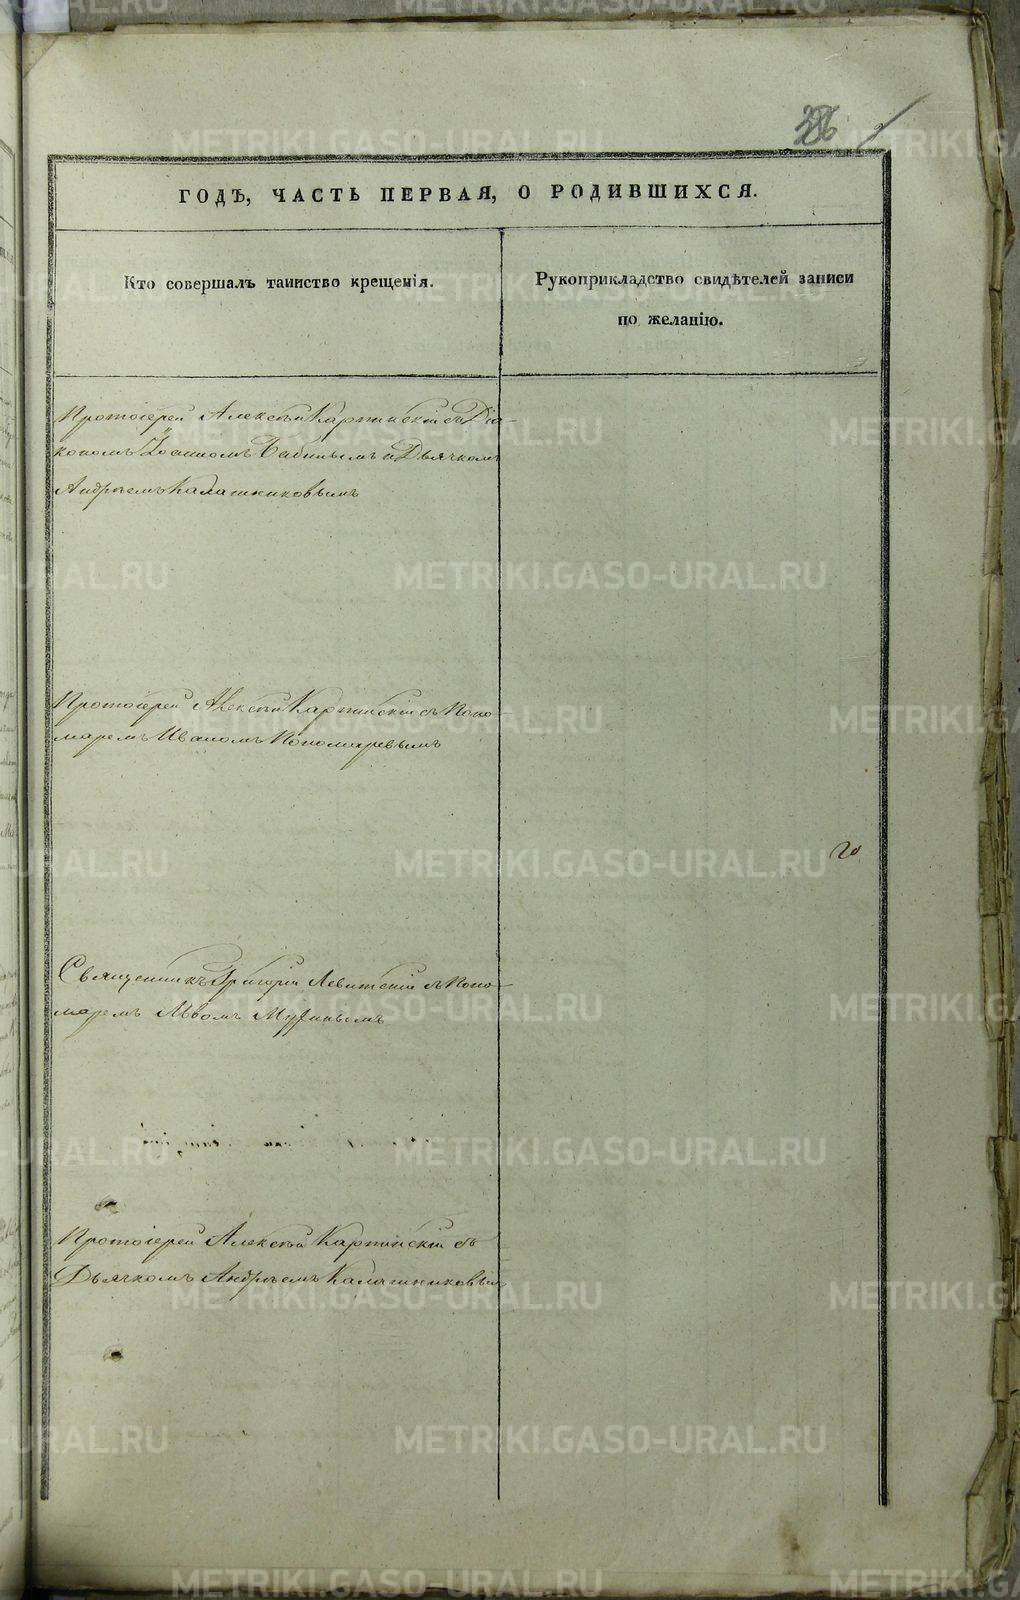 ГОДѢ, ЧАСТЬ ПЕРВАЯ, О РОДИВШИХСЯ.
Кто совершалъ таинство крещенія.
Рукоприкладство свидѣтелей записи
по желанію.
Протоіерей Алексѣй Карпинскій съ Діа-
кономъ Іоанномъ Бабинымъ и Дьячкомъ
Андреемъ Калашниковымъ
Протоіерей Алексѣй Карпинскій съ Поно-
маремъ Иваномъ Пономаревымъ
Священникъ Григорій Левитскій съ Поно-
маремъ Львомъ
Протоіерей Алексѣй Карпинскій съ
Дьячкомъ Андреемъ Калашниковым
METRIKI.GASO-URAL.RU